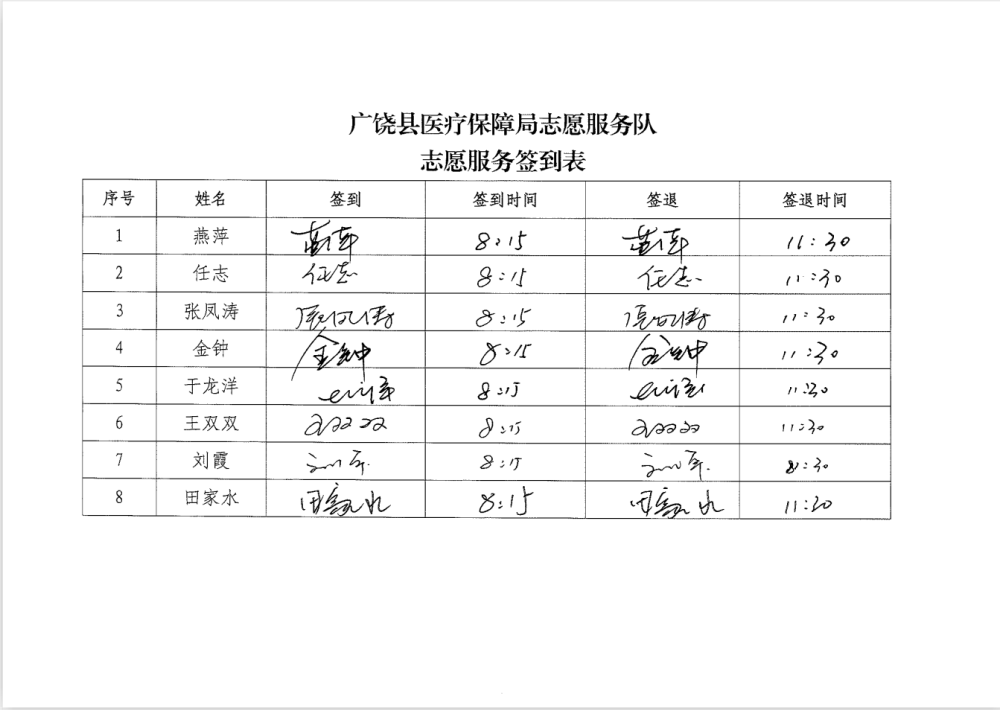 广饶县医疗保障局志愿服务队
志愿服务签到表
序号 姓名 签到 签到时间 签退 签退时间
1 燕萍 燕萍 8:15 燕萍 11:30
2 任志 任志 8:15 任志 11:30
3 张凤涛 张凤涛 8:15 张凤涛 11:30
4 金钟 金钟 8:15 金钟 11:30
5 于龙洋 于龙洋 8:15 于龙洋 11:30
6 王双双 王双双 8:15 王双双 11:30
7 刘霞 刘霞 8:15 刘霞 8:30
8 田家水 田家水 8:15 田家水 11:30